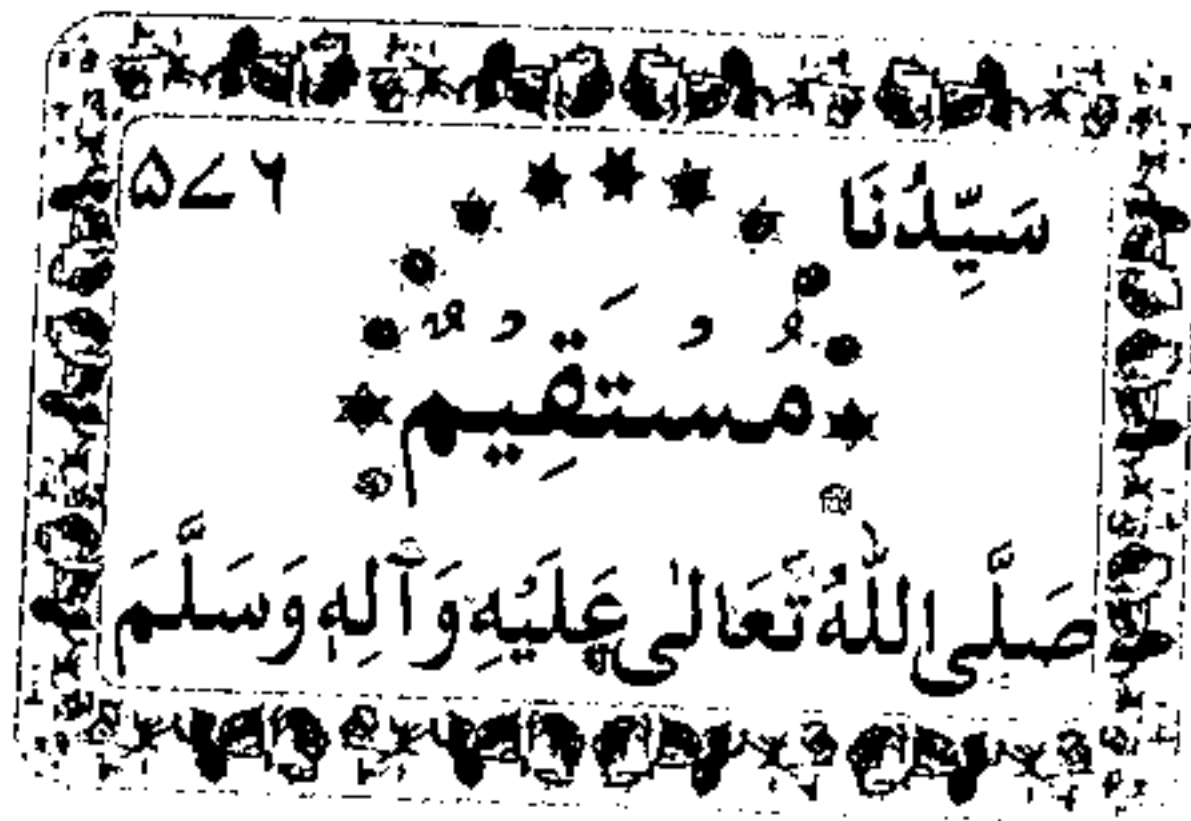 سَيِّدُنَا ۵۷۶
مُسْتَقِيمٌ
صَلَّى اللّٰهُ تَعَالٰى عَلَيْهِ وَآلِهٖ وَسَلَّمَ